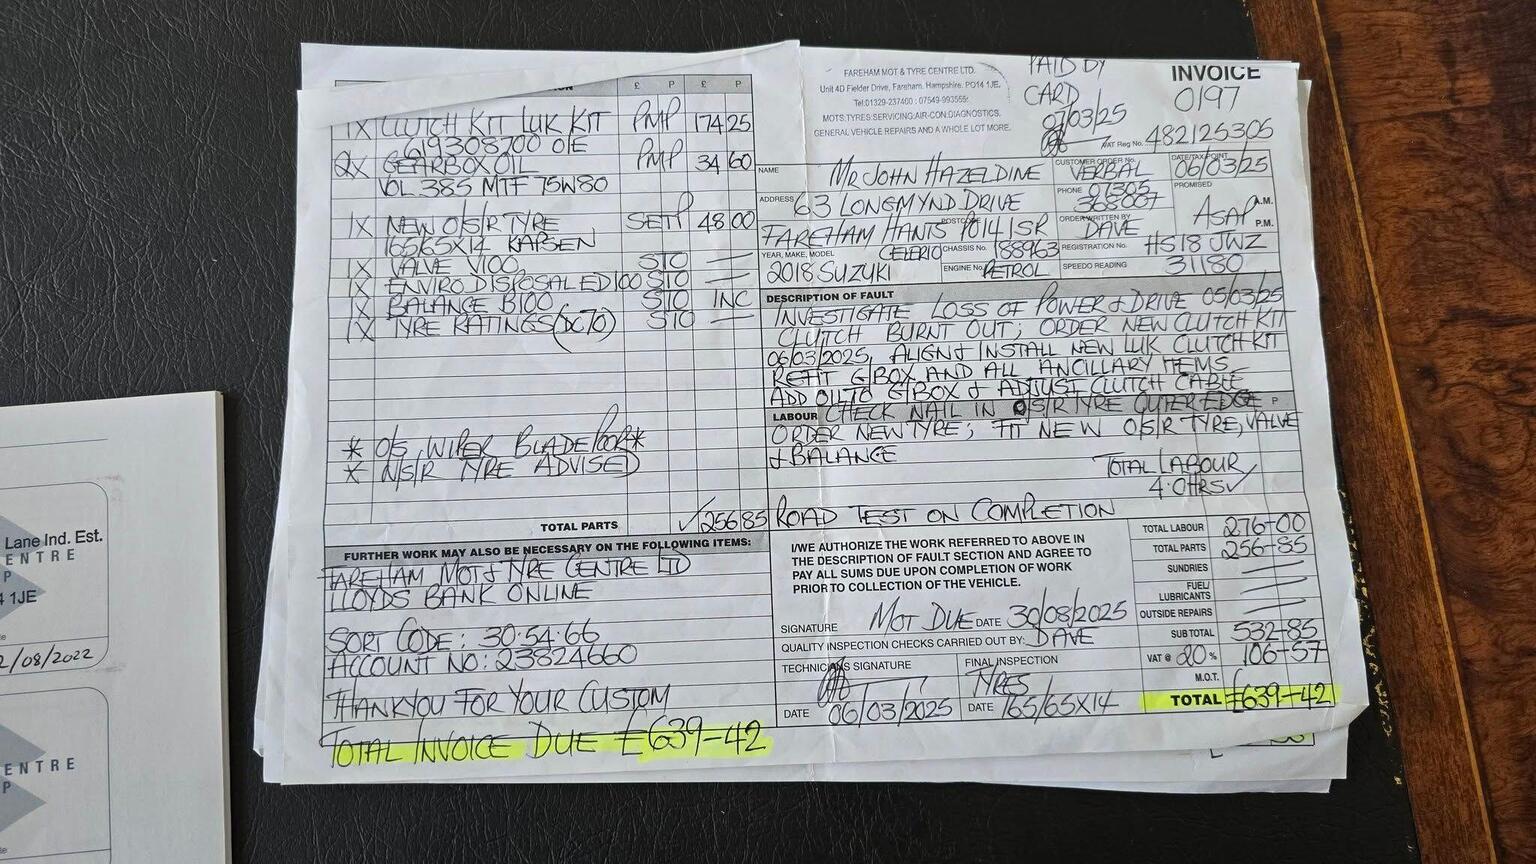 £ P £ P
1X CLUTCH KIT LUK KIT PMP 174 25
619308700 OE
2X GEARBOX OIL PMP 34 60
VOL 385 MTF 75W80
1X NEW O/S/R TYRE SETP 48 00
165/65X14 KAPSEN
1X VALVE V100 STO —
1X ENVIRO DISPOSAL ED100 STO —
1X BALANCE B100 STO INC
1X TYRE RATINGS (DC70) STO —
* O/S WIPER BLADE POOR *
* N/S/R TYRE ADVISED
TOTAL PARTS 256 85
FURTHER WORK MAY ALSO BE NECESSARY ON THE FOLLOWING ITEMS:
FAREHAM MOT & TYRE CENTRE LTD
LLOYDS BANK ONLINE
SORT CODE: 30-54-66
ACCOUNT NO: 23824660
THANKYOU FOR YOUR CUSTOM
TOTAL INVOICE DUE £639-42
FAREHAM MOT & TYRE CENTRE LTD.
Unit 4D Fielder Drive, Fareham, Hampshire. PO14 1JE.
Tel:01329-237400 : 07549-993555:
MOTS:TYRES:SERVICING:AIR-CON:DIAGNOSTICS.
GENERAL VEHICLE REPAIRS AND A WHOLE LOT MORE.
PAID BY
CARD
07/03/25
INVOICE
0197
VAT Reg No. 482125305
NAME MR JOHN HAZELDINE
CUSTOMER ORDER No. VERBAL
DATE/TAX POINT 06/03/25
ADDRESS 63 LONGMYND DRIVE
PHONE 07305
368007
PROMISED ASAP A.M.
P.M.
FAREHAM HANTS POSTCODE PO14 1SR
ORDER WRITTEN BY DAVE
YEAR, MAKE, MODEL CELERIO
2018 SUZUKI
CHASSIS No. 188963
REGISTRATION No. HS18 JWZ
ENGINE No. PETROL
SPEEDO READING 31180
DESCRIPTION OF FAULT
INVESTIGATE LOSS OF POWER & DRIVE 05/03/25
CLUTCH BURNT OUT; ORDER NEW CLUTCH KIT
06/03/2025, ALIGN & INSTALL NEW LUK CLUTCH KIT
REFIT G/BOX AND ALL ANCILLARY ITEMS
ADD OIL TO G/BOX & ADJUST CLUTCH CABLE
LABOUR CHECK NAIL IN O/S/R TYRE OUTER EDGE P
ORDER NEW TYRE; FIT NEW O/S/R TYRE, VALVE
& BALANCE
TOTAL LABOUR
4.0HRS
ROAD TEST ON COMPLETION
I/WE AUTHORIZE THE WORK REFERRED TO ABOVE IN
THE DESCRIPTION OF FAULT SECTION AND AGREE TO
PAY ALL SUMS DUE UPON COMPLETION OF WORK
PRIOR TO COLLECTION OF THE VEHICLE.
SIGNATURE MOT DUE DATE 30/08/2025
QUALITY INSPECTION CHECKS CARRIED OUT BY: DAVE
TECHNICIANS SIGNATURE
DATE 06/03/2025
FINAL INSPECTION
TYRES
DATE 165/65X14
TOTAL LABOUR 276-00
TOTAL PARTS 256-85
SUNDRIES —
FUEL/
LUBRICANTS —
OUTSIDE REPAIRS —
SUB TOTAL 532-85
VAT @ 20 % 106-57
M.O.T.
TOTAL £639-42
Lane Ind. Est.
ENTRE
P
4 1JE
2/08/2022
ENTRE
P